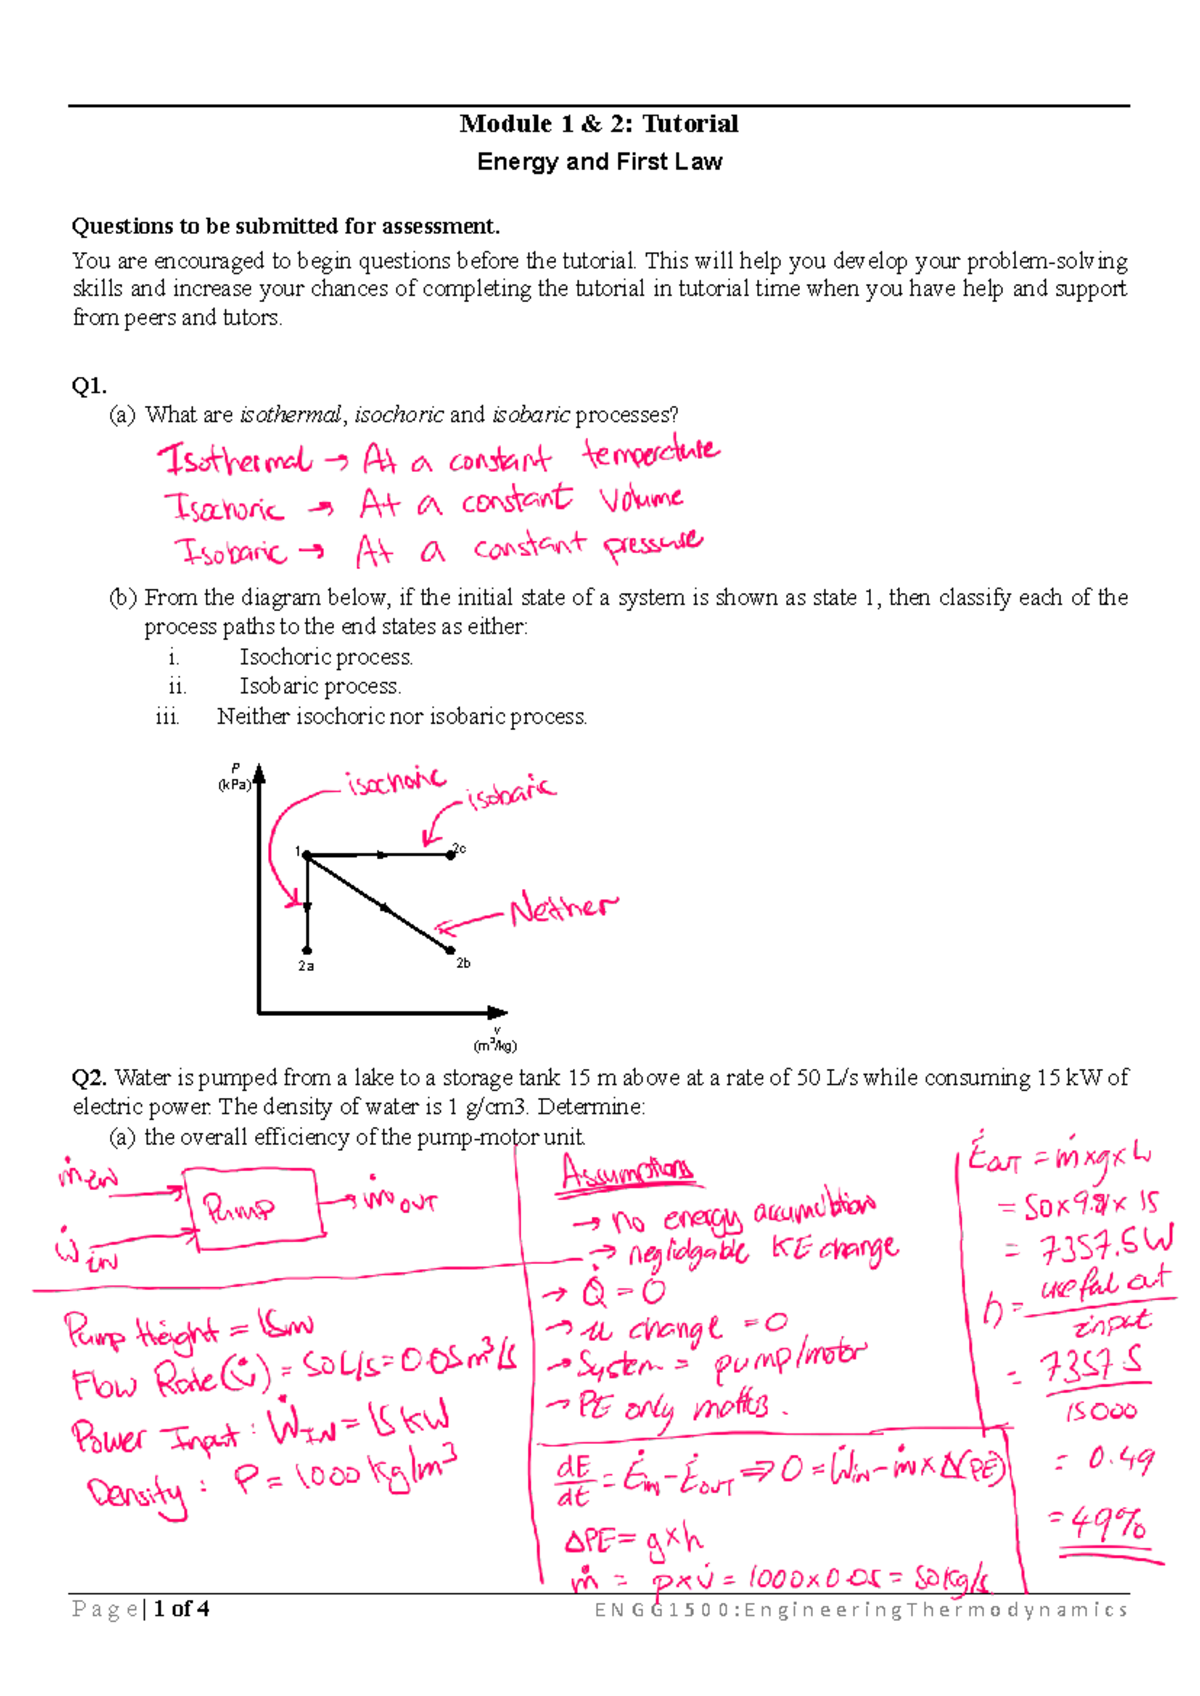 Module 1 & 2: Tutorial
Energy and First Law
Questions to be submitted for assessment.
You are encouraged to begin questions before the tutorial. This will help you develop your problem-solving
skills and increase your chances of completing the tutorial in tutorial time when you have help and support
from peers and tutors.
Q1.
(a) What are isothermal, isochoric and isobaric processes?
Isothermal → At a constant temperature
Isochoric → At a constant volume
Isobaric → At a constant pressure
(b) From the diagram below, if the initial state of a system is shown as state 1, then classify each of the
process paths to the end states as either:
i. Isochoric process.
ii. Isobaric process.
iii. Neither isochoric nor isobaric process.
P
(kPa)
isochoric
isobaric
1
2c
Neither
2a
2b
v
(m³/kg)
Q2. Water is pumped from a lake to a storage tank 15 m above at a rate of 50 L/s while consuming 15 kW of
electric power. The density of water is 1 g/cm3. Determine:
(a) the overall efficiency of the pump-motor unit.
ṁIN
Pump
ṁOUT
ẆIN
Pump Height = 15m
Flow Rate (V̇) = 50L/s = 0.05m³/s
Power Input : ẆIN = 15kW
Density : ρ = 1000kg/m³
Assumptions
→ no energy accumulation
→ neglidgable KE change
→ Q̇ = 0
→ u change = 0
→ System = pump/motor
→ PE only matters.
dE/dt = Ėin - ĖOUT ⇒ 0 = ẆIN - ṁ x Δ(PE)
ΔPE = g x h
ṁ = ρ x V̇ = 1000 x 0.05 = 50kg/s
ĖOUT = ṁ x g x h
= 50 x 9.81 x 15
= 7357.5W
η = useful out / input
= 7357.5 / 15000
= 0.49
= 49%
Page | 1 of 4
ENGG1500: Engineering Thermodynamics